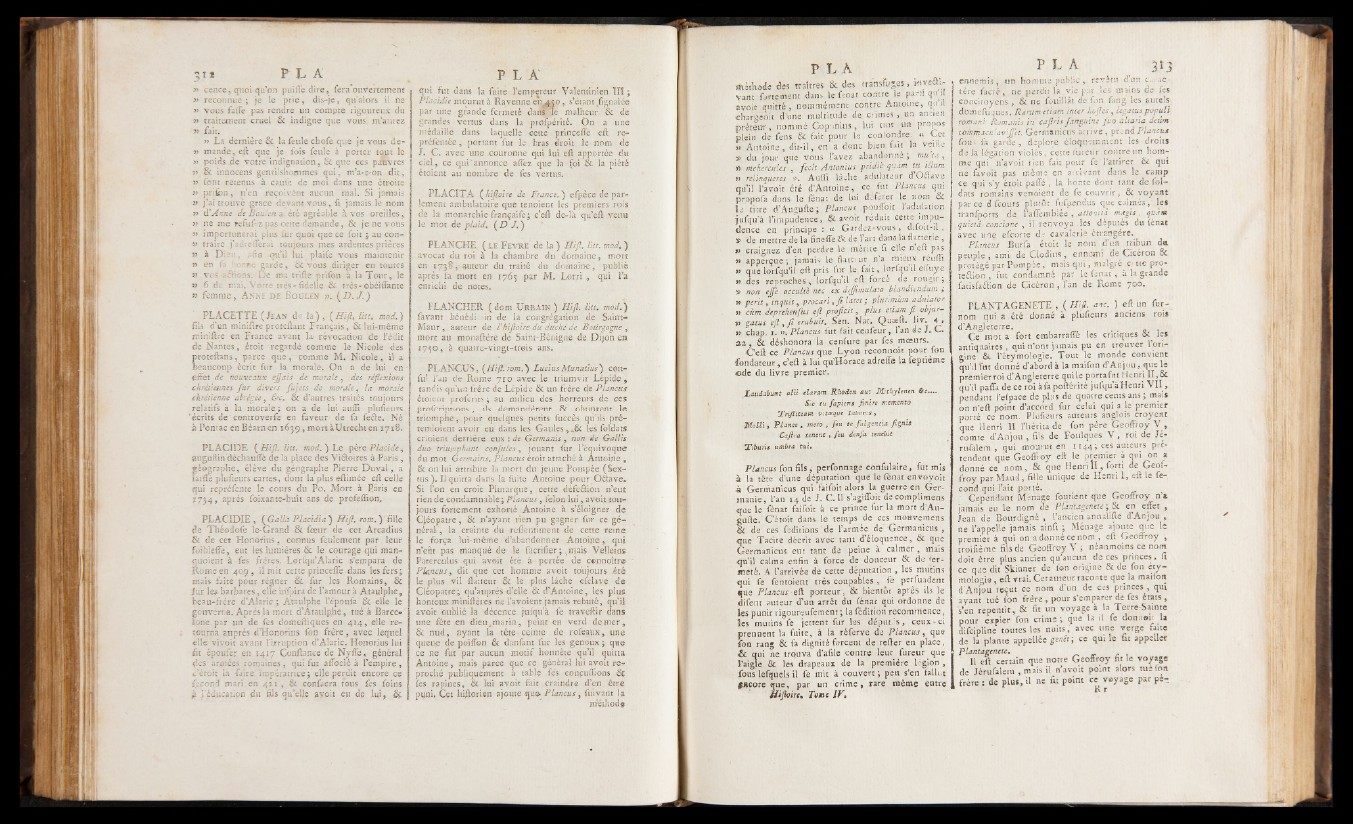 312 PLA
» cence, quoi qu'on puisse dire, sera ouvertement
» reconnue ; je le prie, dis-je, qu'alors il ne
» vous fasse pas rendre un compte rigoureux du
» traitement cruel & indigne que vous m'aurez
» fait.
» La dernière & la seule chose que je vous de-
» mande, est que je sois seule à porter tout le
» poids de votre indignation, & que ces pauvres
» & innocens gentilshommes qui, m'a-t-on dit,
» sont retenus à cause de moi dans une étroite
» prison, n'en reçoivent aucun mal. Si jamais
» j'ai trouvé grace devant vous, si jamais le nom
» d'Anne de Boulen a été agréable à vos oreilles,
» ne me refusez pas cette demande, & je ne vous
» importunerai plus sur quoi que ce soit ; au con-
» traire j'adresserai toujours mes ardentes prières
» à Dieu, afin qu'il lui plaise vous maintenir
» en sa bonne garde, & vous diriger en toutes
» vos actions. De ma triste prison à la Tour, le
» 6 de mai. Votre très-fidelle & très-obéissante
» femme, ANNE DE BOULEN ». (D. J.)
PLACETTE (JEAN de la), (Hist. litt. mod.)
fils d'un ministre protestant Français, & lui-même
ministre en France avant la révocation de l'édit
de Nantes, étoit regardé comme le Nicole des
protestans, parce que, comme M. Nicole, il a
beaucoup écrit sur la morale. On a de lui en
effet de nouveaux essais de morale, des réflexions
chrétiennes sur divers sujets de morale, la morale
chrétienne abrégée, &c. & d'autres traités toujours
relatifs à la morale ; on a de lui aussi plusieurs
écrits de controverse en faveur de sa secte. Né
à Pontac en Béarn en 1639, mort à Utrecht en 1718.
PLACIDE (Hist. litt. mod.) Le père Placide,
augustin déchaussé de la place des Victoires à Paris,
géographe, élève du géographe Pierre Duval, a
laissé plusieurs cartes, dont la plus estimée est celle
qui représente le cours du Po. Mort à Paris en
1734, après soixante-huit ans de profession.
PLACIDIE, (Galla Placidia) Hist. rom.) fille
de Théodose le-Grand & sœur de cet Arcadius
& de cet Honorius, connus seulement par leur
foiblesse, eut les lumières & le courage qui man-
quoient à ses frères. Lorsqu'Alaric s'empara de
Rome en 409, il mit cette princesse dans les fers ;
mais faite pour régner & sur les Romains, &
sur les barbares, elle inspira de l'amour à Ataulphe,
beau-frère d'Alaric ; Ataulphe l'épousa & elle le
gouverna. Après la mort d'Ataulphe, tué à Barce-
lone par un de ses domestiques en 414, elle re-
tourna auprès d'Honorius son frère, avec lequel
elle vivoit avant l'irruption d'Alaric. Honorius lui
fit épouser en 1417 Constance de Nysse, général
des armées romaines, qui fut associé à l'empire,
c'étoit la faire impératrice ; elle perdit encore ce
second mari en 421, & consacra tous ses soins
à l'éducation du fils qu'elle avoit eu de lui, &
PLA
qui fut dans la suite l'empereur Valentinien III ;
Placidie mourut à Ravenne en 450, s'étant signalée
par une grande fermeté dans le malheur & de
grandes vertus dans la prospérité. On a une
médaille dans laquelle cette princesse est re-
présentée, portant sur le bras droit le nom de
J. C. avec une couronne qui lui est apportée du
ciel, ce qui annonce assez que la foi & la piété
étoient au nombre de ses vertus.
PLACITA (histoire de France.) espèce de par-
lement ambulatoire que tenoient les premiers rois
de la monarchie française ; c'est de-là qu'est venu
le mot de plaid. (D J.)
PLANCHE (LE FEVRE de la) Hist. litt. mod.)
avocat du roi à la chambre du domaine, mort
en 1738, auteur du traité du domaine, publié
après sa mort en 1765 par M. Lorri, qui l'a
enrichi de notes.
PLANCHER (dom URBAIN) Hist. litt. mod.)
savant bénédictin de la congrégation de Saint-
Maur, auteur de l'histoire du duché de Bourgogne,
mort au monastère de Saint-Bénigne de Dijon en
1750, à quatre-vingt-trois ans.
PLANCUS, (Hist. rom.) Lucius Munatius) con-
sul l'an de Rome 710 avec le triumvir Lépide,
tandis qu'un frère de Lépide & un frère de Plancus
étoient proscrits ; au milieu des horreurs de ces
proscriptions, ils demandèrent & obtinrent le
triomphe, pour quelques petits succès qu'ils pré-
tendoient avoir eu dans les Gaules, & les soldats
crioient derrière eux : de Germanis, non de Gallis
duo triumphant consules, jouant sur l'équivoque
du mot Germains. Plancus étoit attaché à Antoine,
& on lui attribue la mort du jeune Pompée (Sex-
tus). Il quitta dans la suite Antoine pour Octave.
Si l'on en croit Plutarque, cette défection n'eut
rien de condamnable ; Plancus, selon lui, avoit tou-
jours fortement exhorté Antoine à s'éloigner de
Cléopatre, & n'ayant rien pu gagner sur ce gé-
néral, la crainte du ressentiment de cette reine
le força lui-même d'abandonner Antoine, qui
n'eût pas manqué de le sacrifier ; mais Velleius
Paterculus qui avoit été à portée de connoître
Plancus, dit que cet homme avoit toujours été
le plus vil flatteur & le plus lâche esclave de
Cléopatre ; qu'auprès d'elle & d'Antoine, les plus
honteux ministères ne l'avoient jamais rebuté, qu'il
avoit oublié la décence jusqu'à se travestir dans
une fête en dieu marin, peint en verd de mer,
& nud, ayant la tête ceinte de roseaux, une
queue de poisson & dansant sur les genoux ; que
ce ne fut par aucun motif honnête qu'il quitta
Antoine, mais parce que ce général lui avoit re-
proché publiquement à table ses concussions &
ses rapines, & lui avoit fait craindre d'en être
puni. Cet historien ajoute que Plancus, suivant la
méthode
PLA
méthode des traîtres & des transfuges, invecti-
vant fortement dans le sénat contre le parti qu'il
avoit quitté, nommément contre Antoine, qu'il
chargeoit d'une multitude de crimes, un ancien
préteur, nommé Coponius, lui tint un propos
plein de sens & fait pour le confondre. « Cet
» Antoine, dit-il, en a donc bien fait la veille
» du jour que vous l'avez abandonné ; multa,
» mehercules, fecit Antonius pridiè quam tu illum
» relinqueres ». Aussi lâche adulateur d'Octave
qu'il l'avoit été d'Antoine, ce fut Plancus qui
proposa dans le sénat de lui déférer le nom &
le titre d'Auguste ; Plancus poussoit l'adulation
jusqu'à l'impudence, & avoit réduit cette impu-
dence en principe : « Gardez-vous, disoit-il,
» de mettre de la finesse & de l'art dans la flatterie,
» craignez d'en perdre le mérite si elle n'est pas
» apperçue ; jamais le flatteur n'a mieux réussi
» que lorsqu'il est pris sur le fait, lorsqu'il essuye
» des reproches, lorsqu'il est forcé de rougir ;
» non esse occultè nec ex dissimulato blandiendum ;
» perit, inquit, procari, si latet ; plurimum adulator
» cùm deprehensus est proficit, plus etiam si objur-
» gatus est, si erubuit. Sen. Nat. Quæst. liv. 4,
» chap. 1. ». Plancus fut fait censeur, l'an de J. C.
22, & déshonora la censure par ses mœurs.
C'est ce Plancus que Lyon reconnoît pour son
fondateur, c'est à lui qu'Horace adresse la septième
ode du livre premier.
Laudabunt alii claram Rhodon aut Mitylenen &c....
Sic tu sapiens finire memento
Tristitiam vitæque labores,
Molli, Plance, mero, seu te fulgentia signis
Castra tenent, seu densa tenebit
Tiburis umbra tui.
Plancus son fils, personnage consulaire, fut mis
à la tête d'une députation que le sénat envoyoit
à Germanicus qui faisoit alors la guerre en Ger-
manie, l'an 14 de J. C. Il s'agissoit de complimens
que le sénat faisoit à ce prince sur la mort d'Au-
guste. C'étoit dans le temps de ces mouvemens
& de ces séditions de l'armée de Germanicus,
que Tacite décrit avec tant d'éloquence, & que
Germanicus eut tant de peine à calmer, mais
qu'il calma enfin à force de douceur & de fer-
meté. A l'arrivée de cette députation, les mutins
qui se sentoient très coupables, se persuadent
que Plancus est porteur, & bientôt après ils le
disent auteur d'un arrêt du sénat qui ordonne de
les punir rigoureusement ; la sédition recommence,
les mutins se jettent sur les députés, ceux-ci
prennent la fuite, à la réserve de Plancus, que
son rang & sa dignité forcent de rester en place,
& qui ne trouva d'asile contre leur fureur que
l'aigle & les drapeaux de la première légion,
sous lesquels il se mit à couvert ; peu s'en fallut
encore que, par un crime, rare même entre
Histoire. Tome IV.
PLA 313
ennemis, un homme public, revêtu d'un carac-
tère sacré, ne perdît la vie par les mains de ses
concitoyens, & ne souillât de son sang les autels
domestiques, Rarum etiam inter hostes, legatus populi
romani Romanis in castris sanguine suo altaria deûm
commaculavisset. Germanicus arrive, prend Plancus
sous sa garde, déplore éloquemment les droits
de la légation violés, cette fureur contre un hom-
me qui n'avoit rien fait pour se l'attirer & qui
ne savoit pas même en arrivant dans le camp
ce qui s'y étoit passé, la honte dont tant de sol-
dats romains venoient de se couvrir, & voyant
par ce discours plutôt suspendus que calmés, les
transports de l'assemblée, attonitâ magis quàm
quietâ concione, il renvoya les députés du sénat
avec une escorte de cavalerie étrangère.
Plancus Bursa étoit le nom d'un tribun du
peuple, ami de Clodius, ennemi de Cicéron &
protégé par Pompée, mais qui, malgré cette pro-
tection, fut condamné par le sénat, à la grande
satisfaction de Cicéron, l'an de Rome 700.
PLANTAGENETE, (Hist. anc.) est un sur-
nom qui a été donné à plusieurs anciens rois
d'Angleterre.
Ce mot a fort embarrassé les critiques & les
antiquaires, qui n'ont jamais pu en trouver l'ori-
gine & l'étymologie. Tout le monde convient
qu'il fut donné d'abord à la maison d'Anjou, que le
premier roi d'Angleterre qui le porta fut Henri II, &
qu'il passa de ce roi à sa postérité jusqu'à Henri VII,
pendant l'espace de plus de quatre cents ans ; mais
on n'est point d'accord sur celui qui a le premier
porté ce nom. Plusieurs auteurs anglois croyent
que Henri II l'hérita de son père Geoffroy V,
comte d'Anjou, fils de Foulques V, roi de Jé-
rusalem, qui mourut en 1144 ; ces auteurs pré-
tendent que Geoffroy est le premier à qui on a
donné ce nom, & que Henri II, sorti de Geof-
froy par Maud, fille unique de Henri I, est le se-
cond qui l'ait porté.
Cependant Ménage soutient que Geoffroy n'a
jamais eu le nom de Plantagenete ; & en effet,
Jean de Bourdigné, l'ancien annaliste d'Anjou,
ne l'appelle jamais ainsi ; Ménage ajoute que le
premier à qui on a donné ce nom, est Geoffroy,
troisième fils de Geoffroy V ; néanmoins ce nom
doit être plus ancien qu'aucun de ces princes, si
ce que dit Skinner de son origine & de son éty-
mologie, est vrai. Cet auteur raconte que la maison
d'Anjou reçut ce nom d'un de ces princes, qui
ayant tué son frère, pour s'emparer de ses états,
s'en repentit, & fit un voyage à la Terre-Sainte
pour expier son crime ; que là il se donnoit la
discipline toutes les nuits, avec une verge faite
de la plante appellée genêt ; ce qui le fit appeller
Plantagenete.
Il est certain que notre Geoffroy fit le voyage
de Jérusalem, mais il n'avoit point alors tué son
frère : de plus, il ne fit point ce voyage par pé-
R r